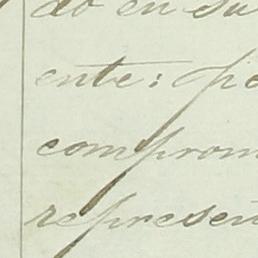 do en su
ente: pe
comprom
represen